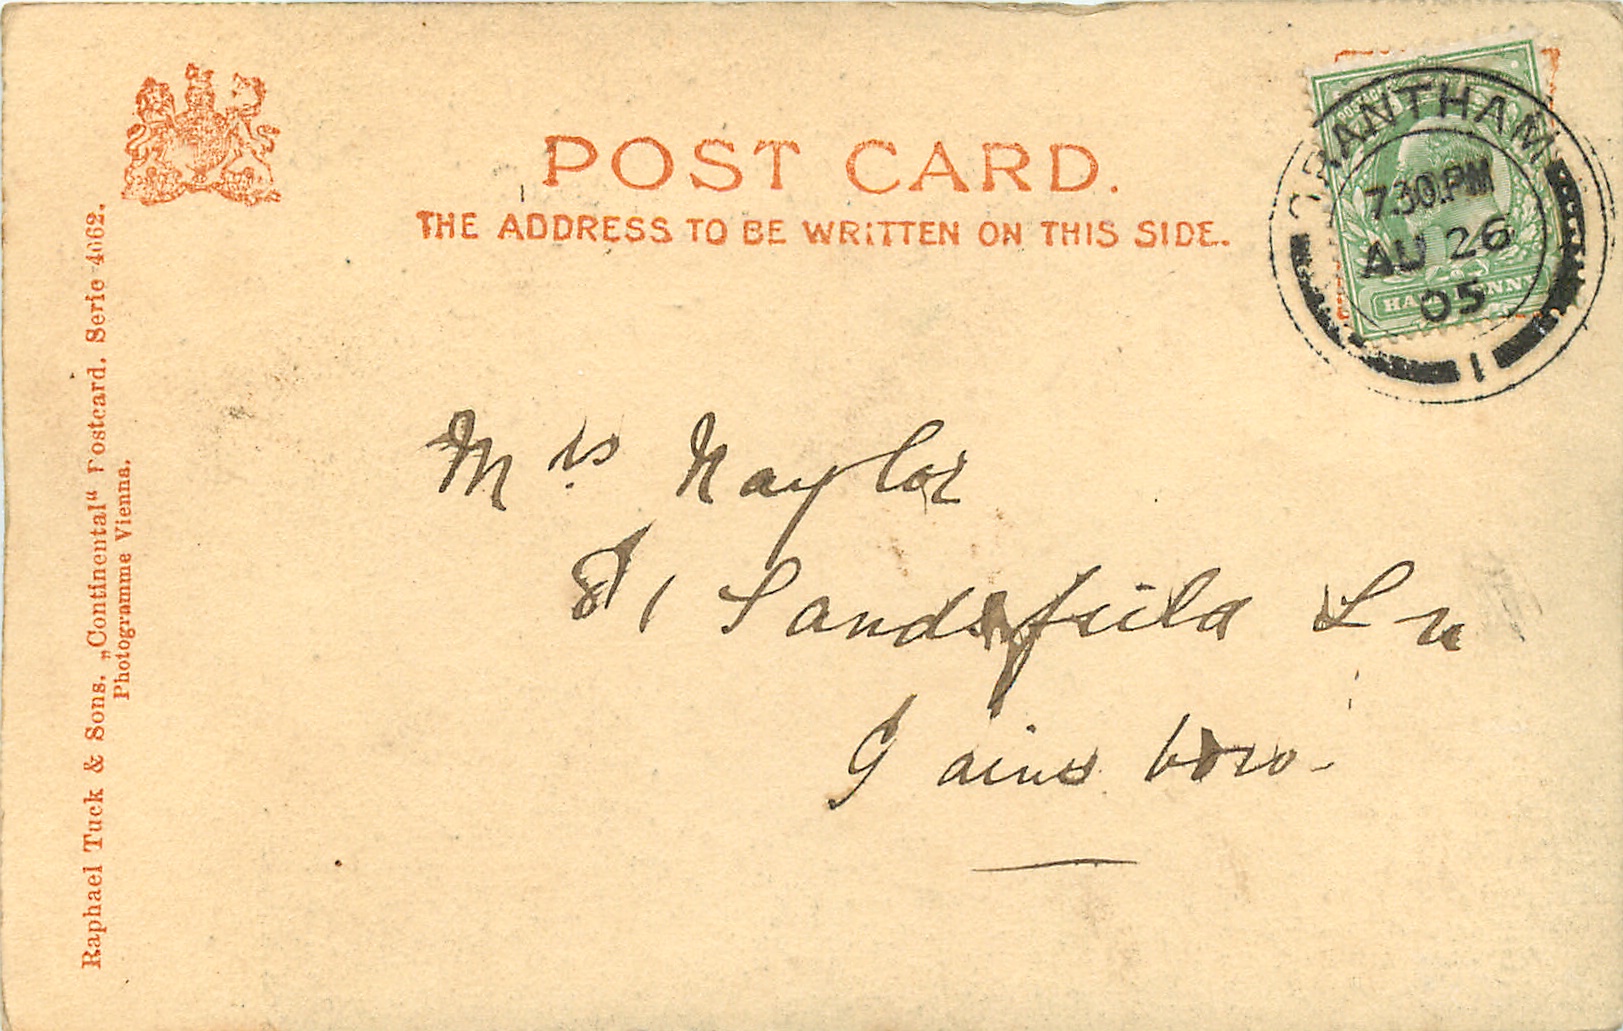 POST CARD.
THE ADDRESS TO BE WRITTEN ON THIS SIDE.
GRANTHAM
7.30.PM
AU 26
05
1
HALFPENNY
Mrs Naylor
81 Sandsfield Ln
Gainsboro-
Raphael Tuck & Sons. „Continental“ Postcard. Serie 4062.
Photogramme Vienna.